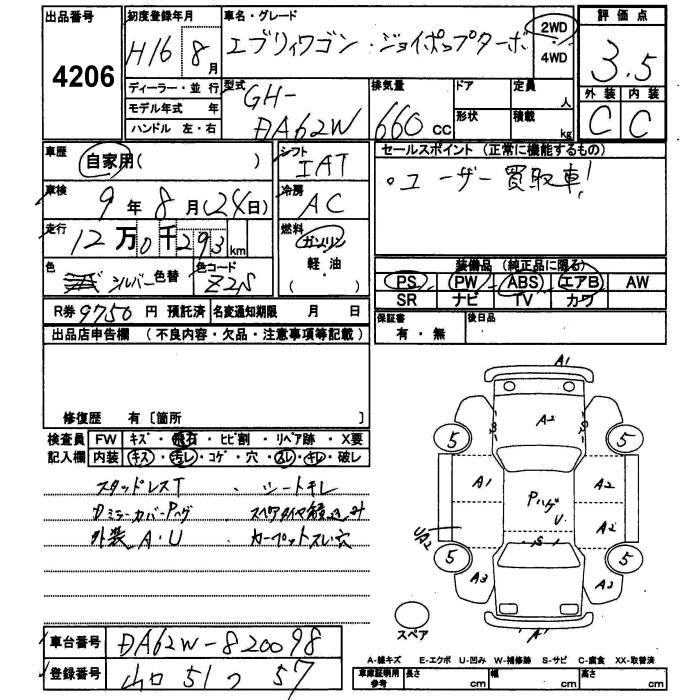 出品番号
4206
初度登録年月
H16 8 月
車名・グレード
エブリィワゴン・ジョイポップターボ
2WD
・
4WD
評価点
3.5
外装 内装
C C
ディーラー・並行
モデル年式 年
ハンドル 左・右
型式
GH-
DA62W
排気量
660 CC
ドア
形状
定員
人
積載
kg
車歴
自家用( )
シフト
IAT
セールスポイント (正常に機能するもの)
。ユーザー買取車!
車検
9 年 8 月(24日)
冷房
AC
走行
12 万 0 千 293 km
燃料
ガソリン
軽・油
色
シルバー 色替
色コード
Z2S
装備品 (純正品に限る)
PS PW ABS エアB AW
SR ナビ TV カワ
R券 9750 円 預託済 名変通知期限 月 日
保証書
有・無
後日品
出品店申告欄 (不良内容・欠品・注意事項等記載)
修復歴 有 [箇所 ]
検査員 FW キズ・飛石・ヒビ割・リペア跡・X要
記入欄 内装 キズ・汚レ・コゲ・穴・スレ・キレ・破レ
スタッドレスT ・シートキレ
DミラーカバーPハゲ
外装A・U カーペットスレ穴
A1
A2
S
S
5
5
A1
A2
Pハゲ
U
A2
UA2
S
5
5
A3
A2
"A"
スペア
車台番号 DA62W-820098
登録番号 山口 51 つ 57
A-線キズ E-エクボ U-凹み W-補修跡 S-サビ C-腐食 XX-取替済
車庫証明用
参考
長さ cm 幅 cm 高さ cm